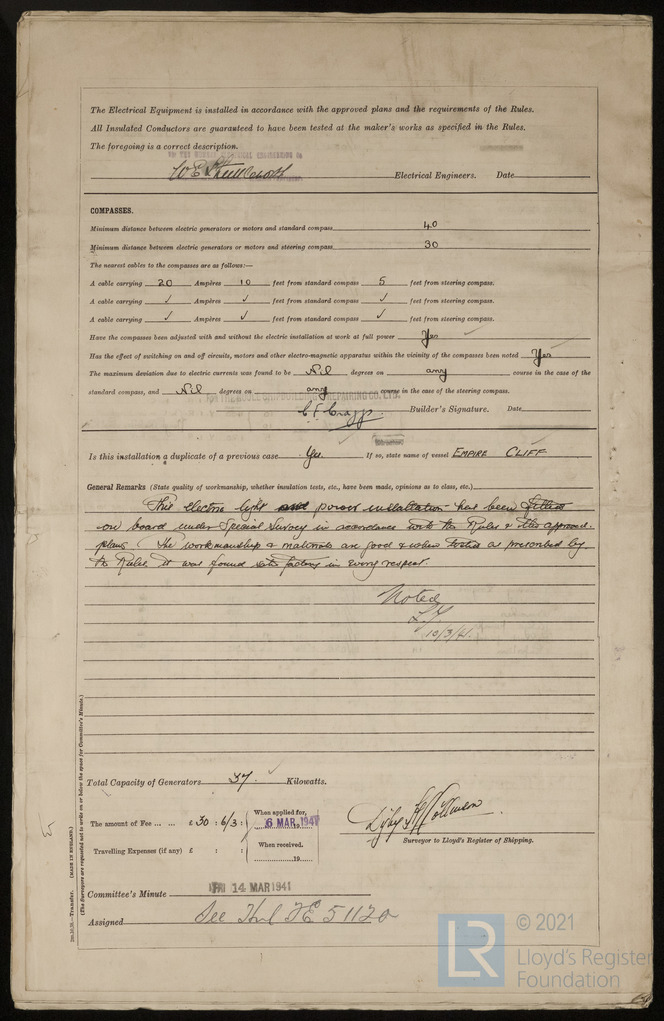 The Electrical Equipment is installed in accordance with the approved plans and the requirements of the Rules.
All Insulated Conductors are guaranteed to have been tested at the maker's works as specified in the Rules.
The foregoing is a correct description.
Electrical Engineers. Date
COMPASSES.
Minimum distance between electric generators or motors and standard compass 40
Minimum distance between electric generators or motors and steering compass 30
The nearest cables to the compasses are as follows:—
A cable carrying 20 Ampères 10 feet from standard compass 5 feet from steering compass.
A cable carrying ✓ Ampères ✓ feet from standard compass ✓ feet from steering compass.
A cable carrying ✓ Ampères ✓ feet from standard compass ✓ feet from steering compass.
Have the compasses been adjusted with and without the electric installation at work at full power Yes
Has the effect of switching on and off circuits, motors and other electro-magnetic apparatus within the vicinity of the compasses been noted Yes
The maximum deviation due to electric currents was found to be Nil degrees on any course in the case of the
standard compass, and Nil degrees on any course in the case of the steering compass.
Builder's Signature. Date
Is this installation a duplicate of a previous case Yes. If so, state name of vessel EMPIRE CLIFF
General Remarks (State quality of workmanship, whether insulation tests, etc., have been made, opinions as to class, etc.)
This electric light and power installation has been fitted
on board under Special Survey in accordance with the Rules & the approved
plans. The workmanship & materials are good & when tested as prescribed by
the Rules, it was found satisfactory in every respect.
Noted
10/3/41.
Total Capacity of Generators 37 Kilowatts.
The amount of Fee ... ... £ 30 : 6/3 :
When applied for,
6 MAR. 1941
Travelling Expenses (if any) £ : :
When received.
19
Surveyor to Lloyd's Register of Shipping.
Committee's Minute FRI 14 MAR 1941
Assigned See FE 51120
2m.10.38.—Transfer. (MADE IN ENGLAND.)
(The Surveyors are requested not to write on or below the space for Committee's Minute.)
LR
© 2021
Lloyd's Register
Foundation